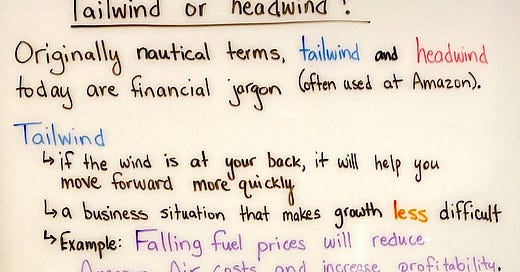 Tailwind or headwind?
Originally nautical terms, tailwind and headwind
today are financial jargon (often used at Amazon).
Tailwind
↳ if the wind is at your back, it will help you
move forward more quickly
↳ a business situation that makes growth less difficult
↳ Example: Falling fuel prices will reduce
Amazon Air costs and increase profitability.